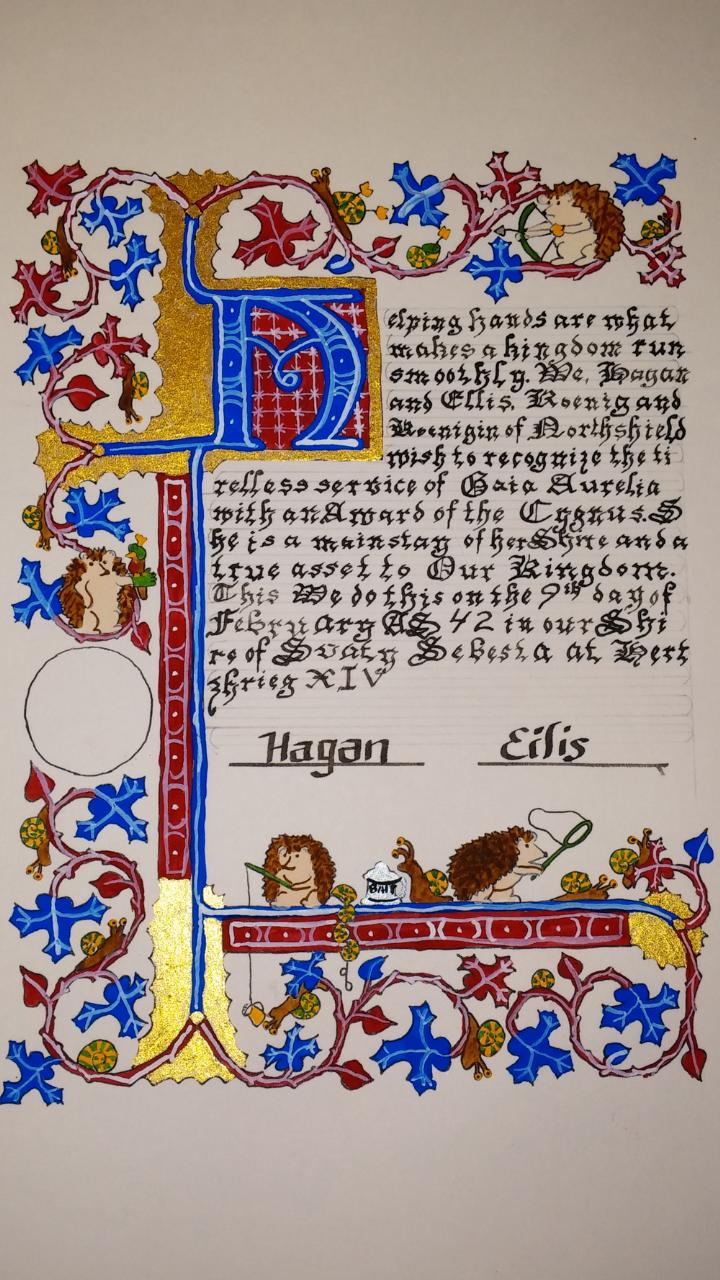 Helping hands are what
makes a kingdom run
smoothly. We, Hagan
and Eilis, Koenig and
Koenigin of Northshield
wish to recognize the ti
relless service of Gaia Aurelia
with an Award of the Cygnus. S
he is a mainstay of her Shire and a
true asset to Our Kingdom.
This We do this on the 9th day of
February AS 42 in our Shi
re of Svaty Sebesta at Hert
zkrieg XIV
Hagan Eilis
BAIT